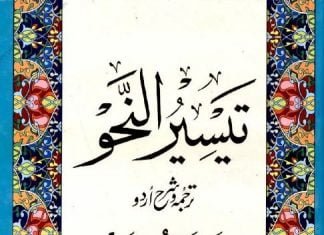 تَيسِيرُ النَّحو
ترجمہ و شرح اُردو